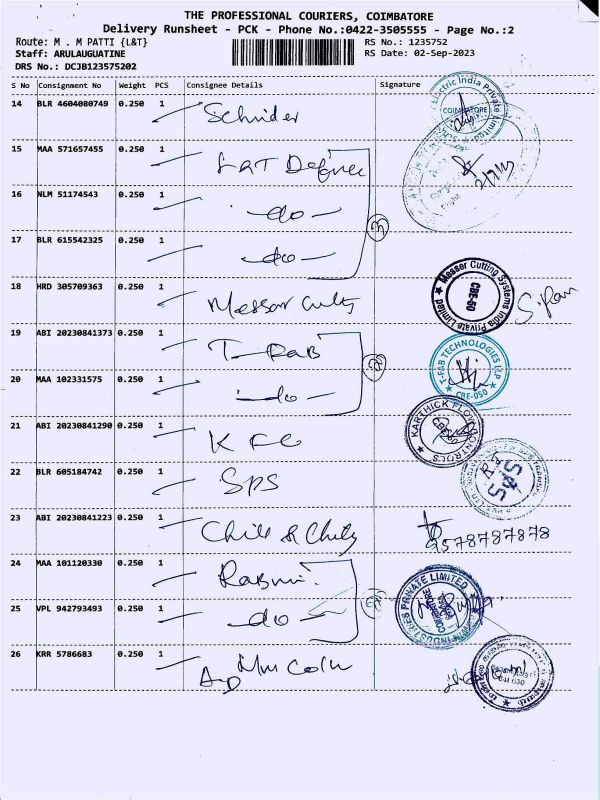 THE PROFESSIONAL COURIERS, COIMBATORE
Delivery Runsheet - PCK - Phone No.:0422-3505555 - Page No.:2
Route: M . M PATTI {L&T}
RS No.: 1235752
Staff: ARULAUGUATINE
RS Date: 02-Sep-2023
DRS No.: DCJB123575202
S No Consignment No Weight PCS Consignee Details Signature
14 BLR 4604080749 0.250 1 Schnider
Electric India Private Limited
COIMBATORE
15 MAA 571657455 0.250 1 L&T Defence
16 NLM 51174543 0.250 1 -do-
17 BLR 615542325 0.250 1 -do-
3
18 HRD 305709363 0.250 1 Messer Cults
Messer Cutting Systems India Private Limited
CBE-50
19 ABI 20230841373 0.250 1 T-FAB
T-FAB TECHNOLOGIES LLP
CBE-050
20 MAA 102331575 0.250 1 -do-
21 ABI 20230841290 0.250 1 K FC
KARTHICK FLOW CONTROLS
22 BLR 605184742 0.250 1 SPS
23 ABI 20230841223 0.250 1 Chill & Chilly
9578787878
24 MAA 101120330 0.250 1
25 VPL 942793493 0.250 1 -do-
INDUSTRIES PRIVATE LIMITED
26 KRR 5786683 0.250 1